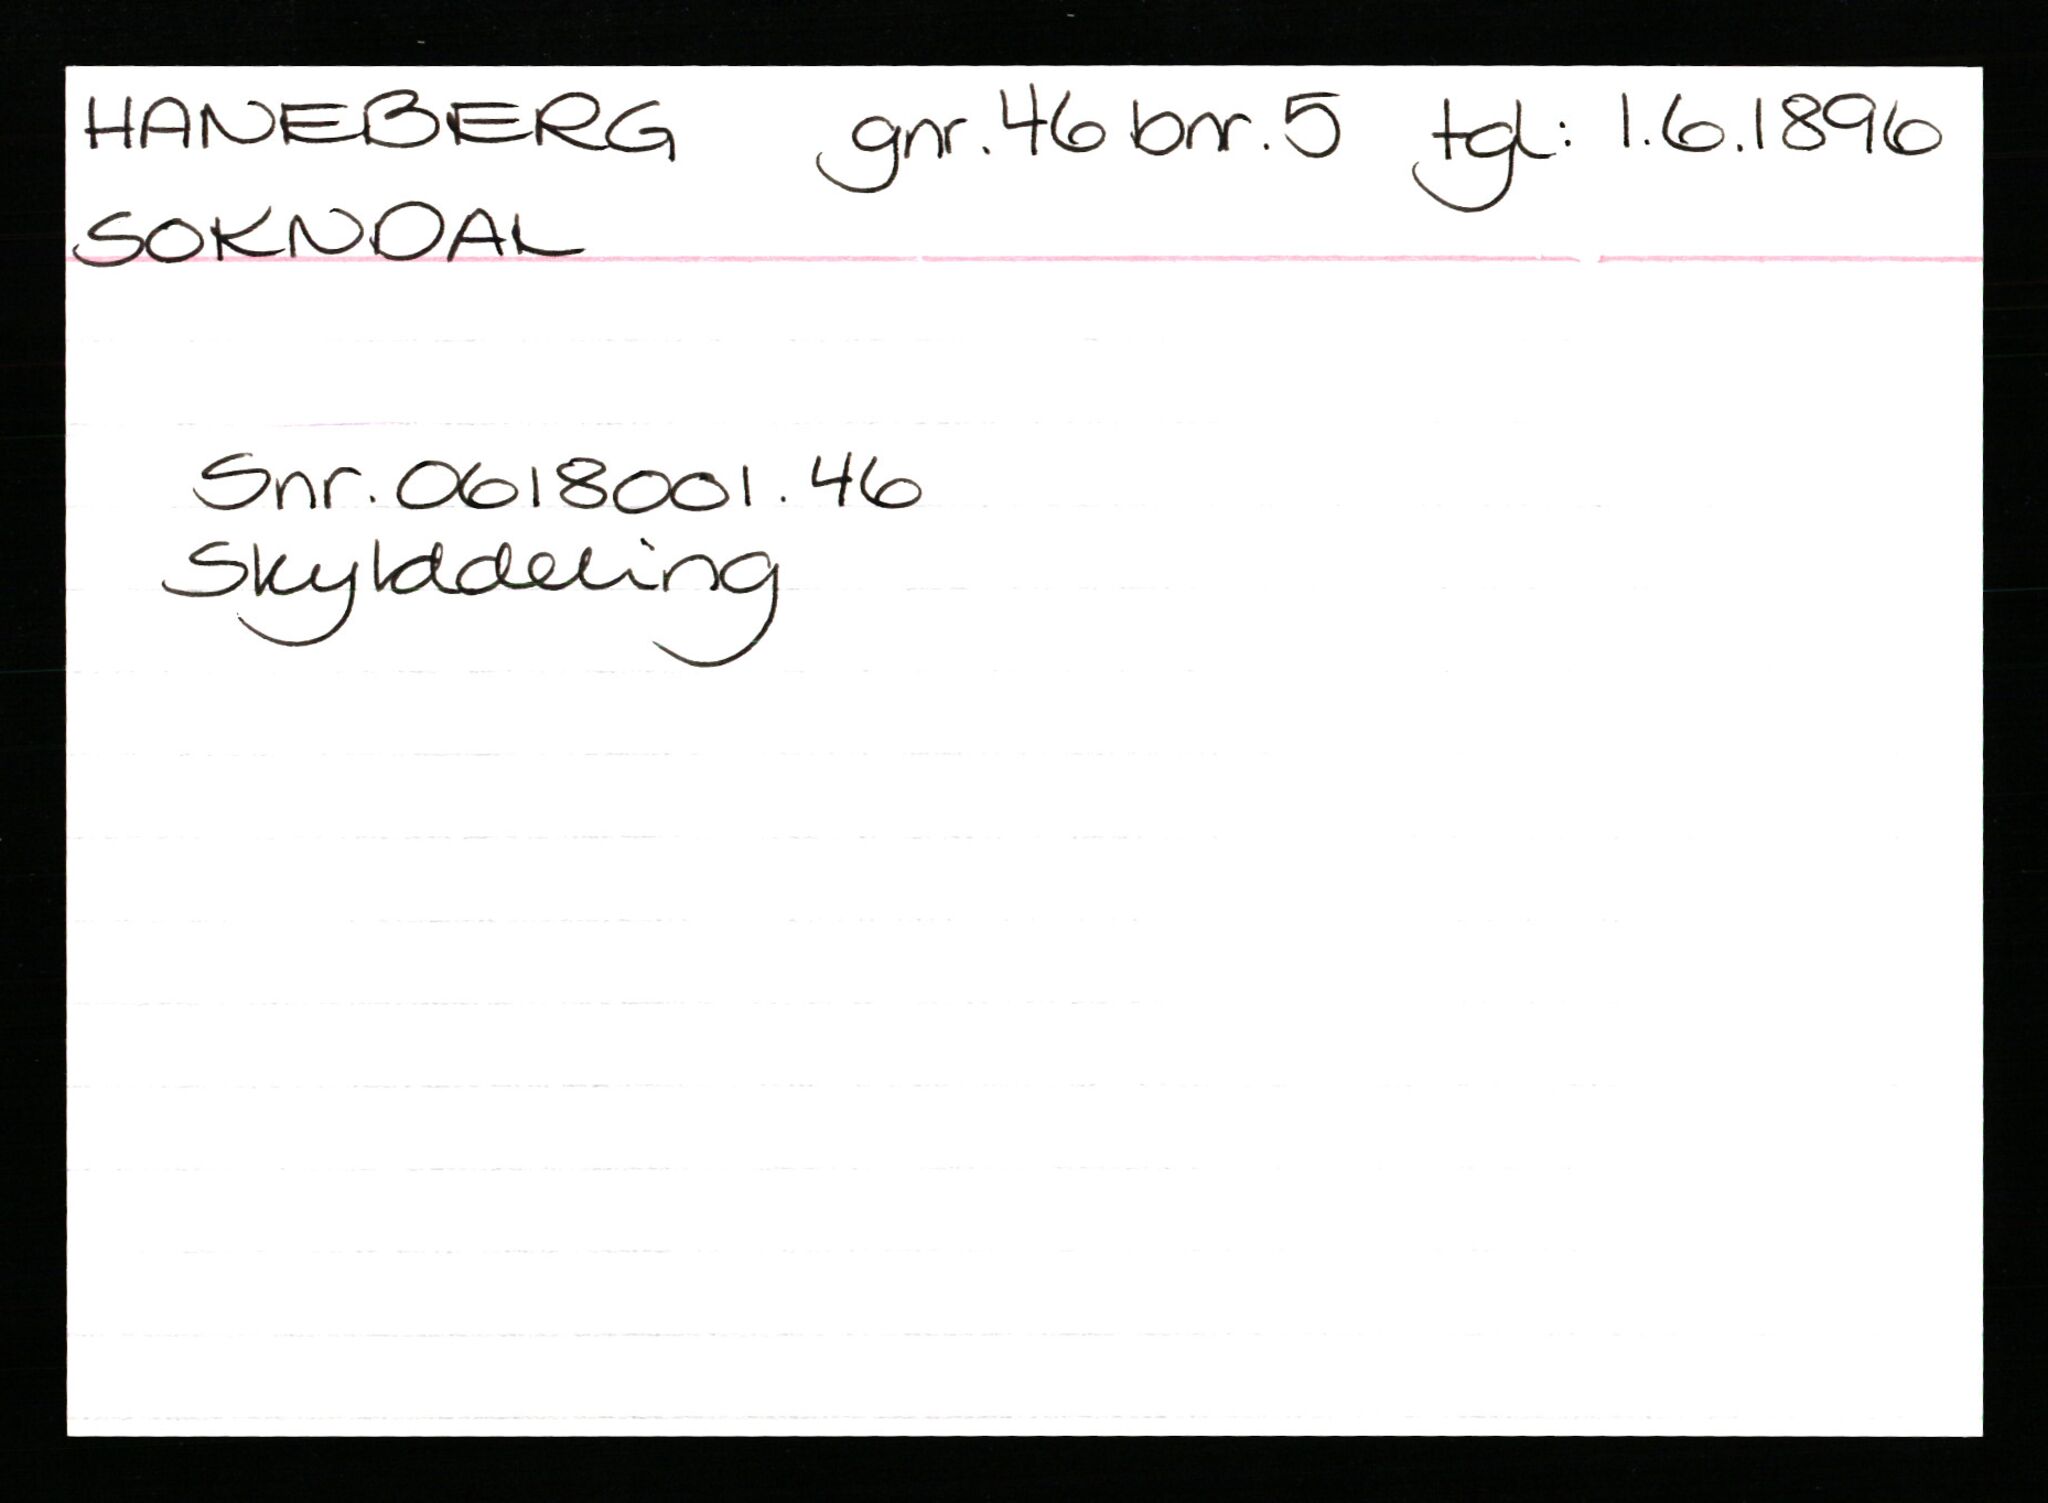 HANEBERG gnr. 46 bnr. 5 tgl: 1.6.1896
SOKNDAL
Snr. 0618001. 46
Skylddeling